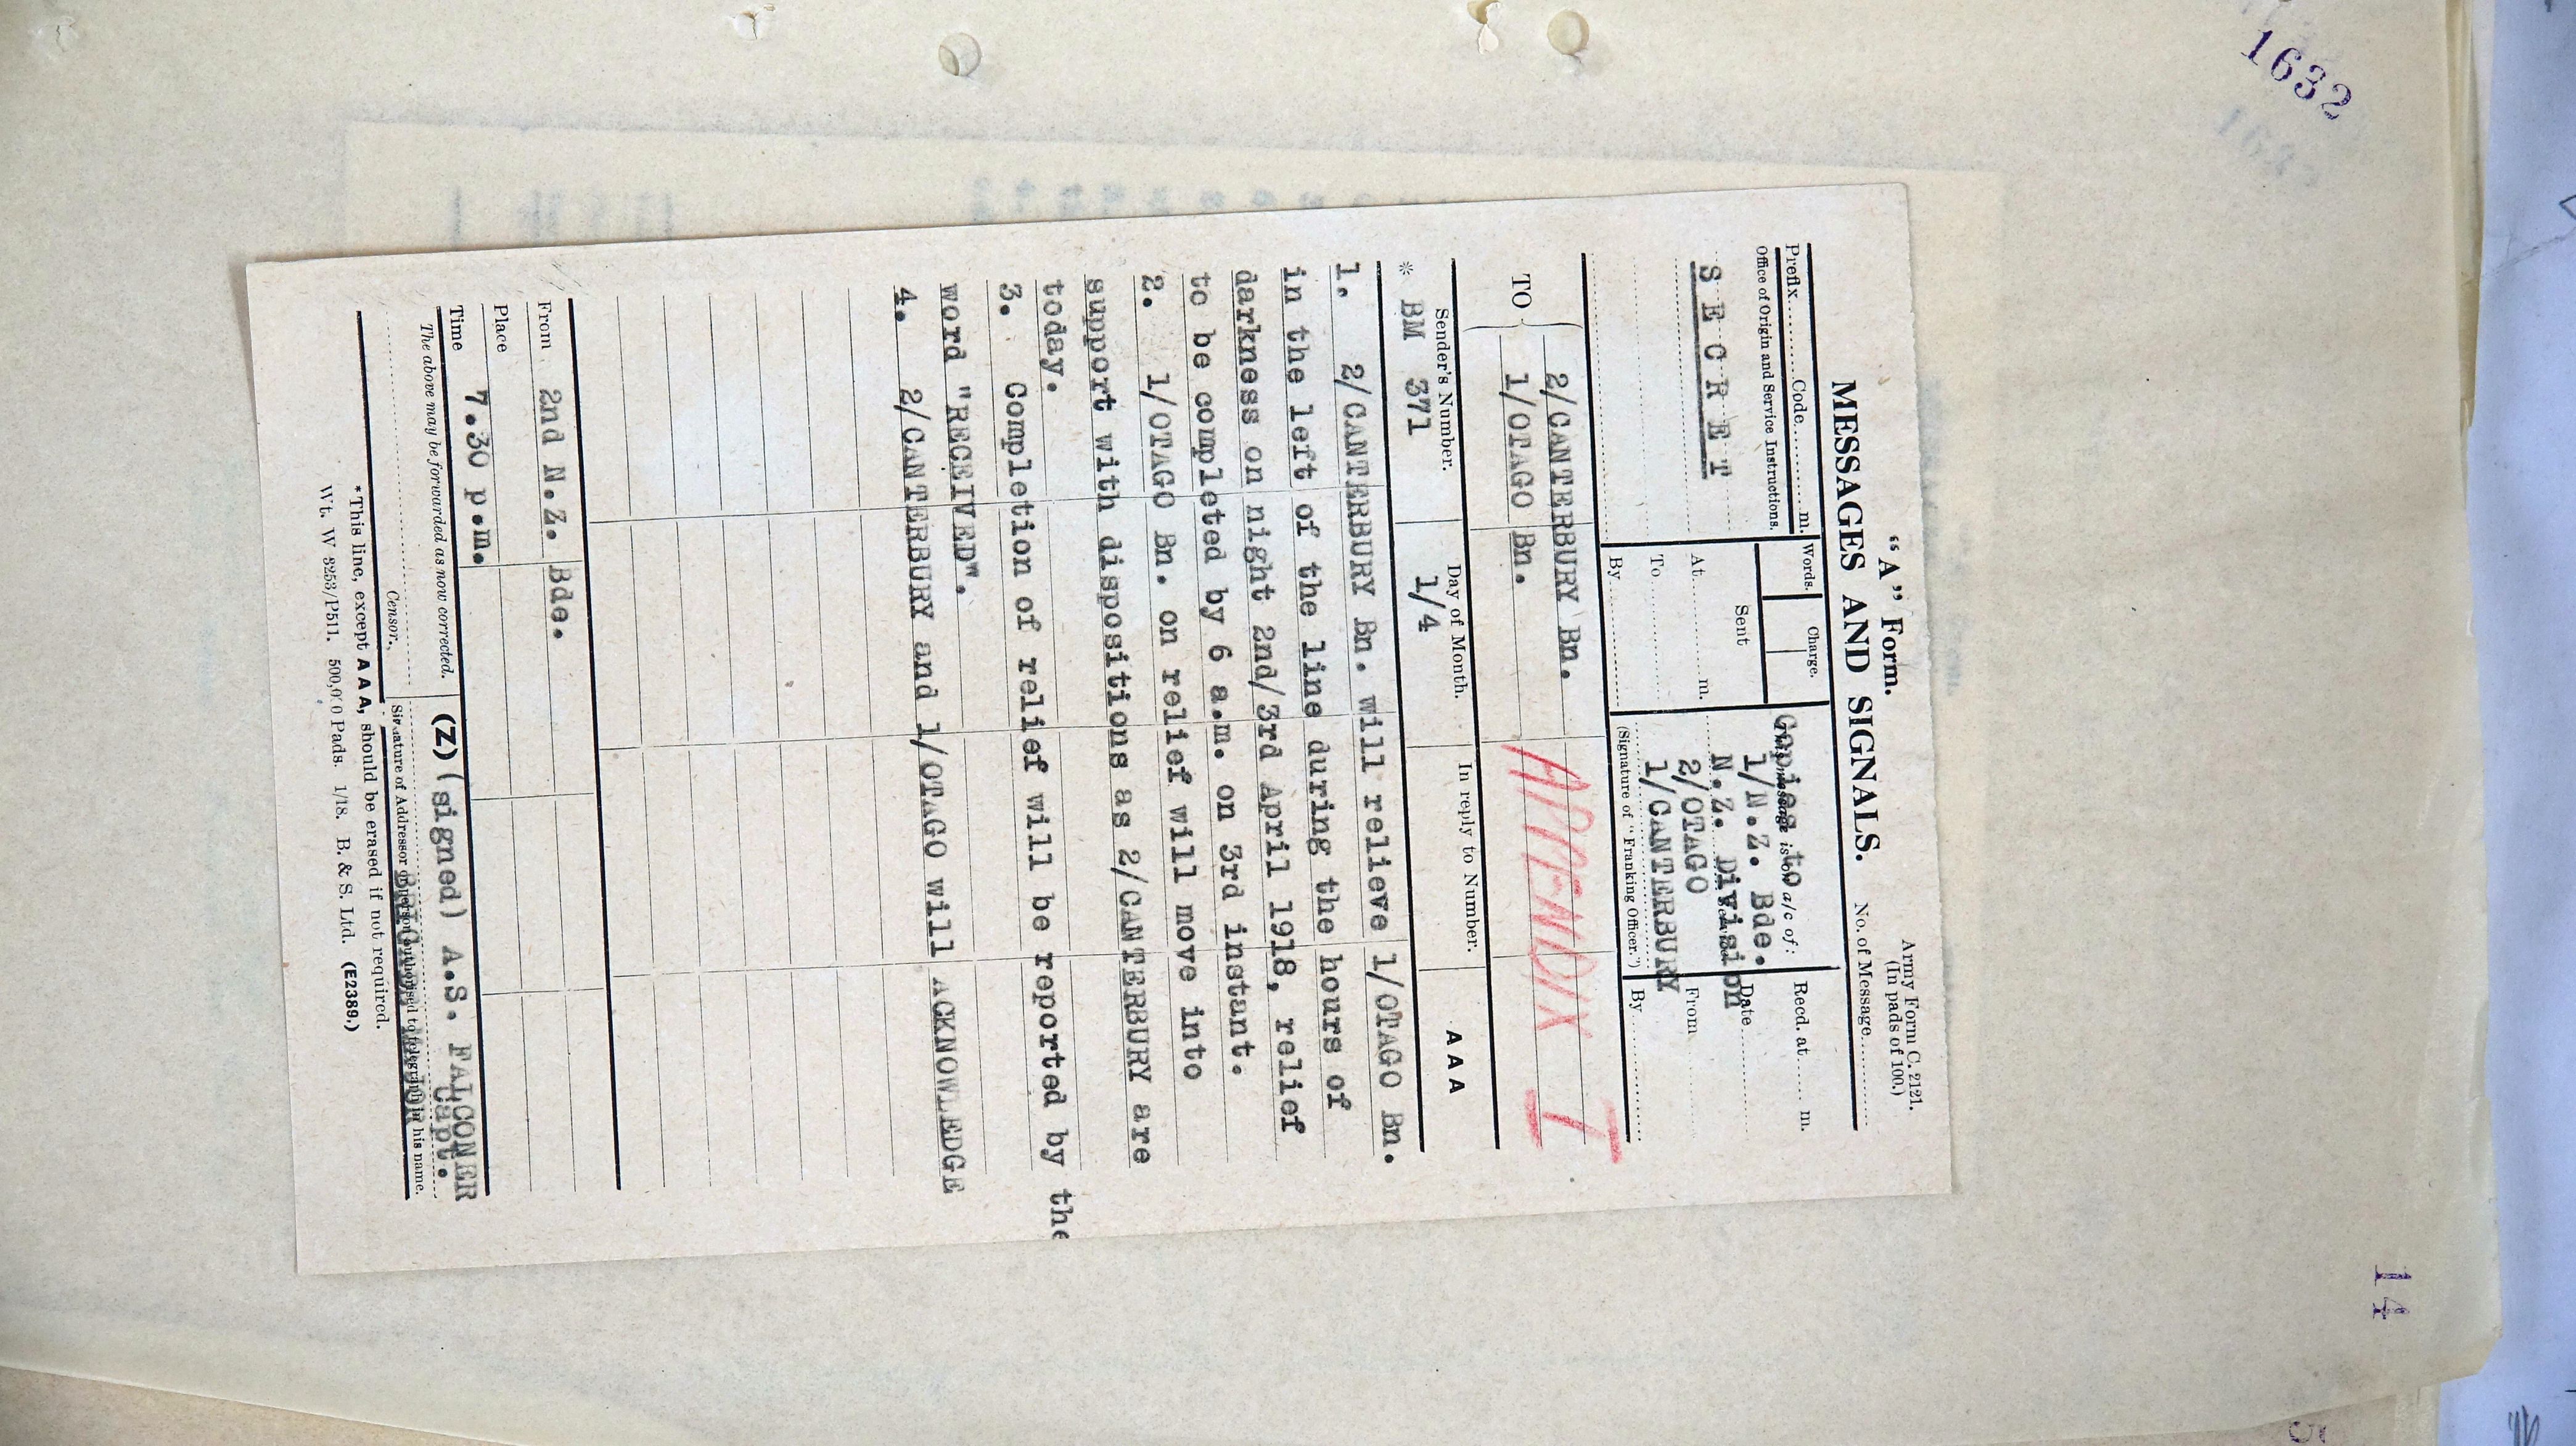 1632
14
"A" Form.
Army Form C. 2121.
(In pads of 100.)
MESSAGES AND SIGNALS.
No. of Message
Prefix Code m.
Office of Origin and Service Instructions.
SECRET
Words. Charge.
Sent
At m.
To
By
Copies to
This message is on a/c of:
1/N.Z. Bde.
N.Z. Division
2/OTAGO
1/CANTERBURY
(Signature of "Franking Officer.")
Recd. at m.
Date
From
By
TO
2/CANTERBURY Bn.
1/OTAGO Bn.
APPENDIX I
Sender's Number. Day of Month. In reply to Number. AAA
* BM 371 1/4
1. 2/CANTERBURY Bn. will relieve 1/OTAGO Bn.
in the left of the line during the hours of
darkness on night 2nd/3rd April 1918, relief
to be completed by 6 a.m. on 3rd instant.
2. 1/OTAGO Bn. on relief will move into
support with dispositions as 2/CANTERBURY are
today.
3. Completion of relief will be reported by the
word "RECEIVED".
4. 2/CANTERBURY and 1/OTAGO will ACKNOWLEDGE
From 2nd N.Z. Bde.
Place
Time 7.30 p.m.
The above may be forwarded as now corrected. (Z) (signed) A.S. FALCONER
Capt.
Censor.
Signature of Addressor or person authorised to telegraph in his name.
BRIGADE MAJOR
*This line, except AAA, should be erased if not required.
Wt. W 3253/P511. 500,000 Pads. 1/18. B. & S. Ltd. (E2389.)